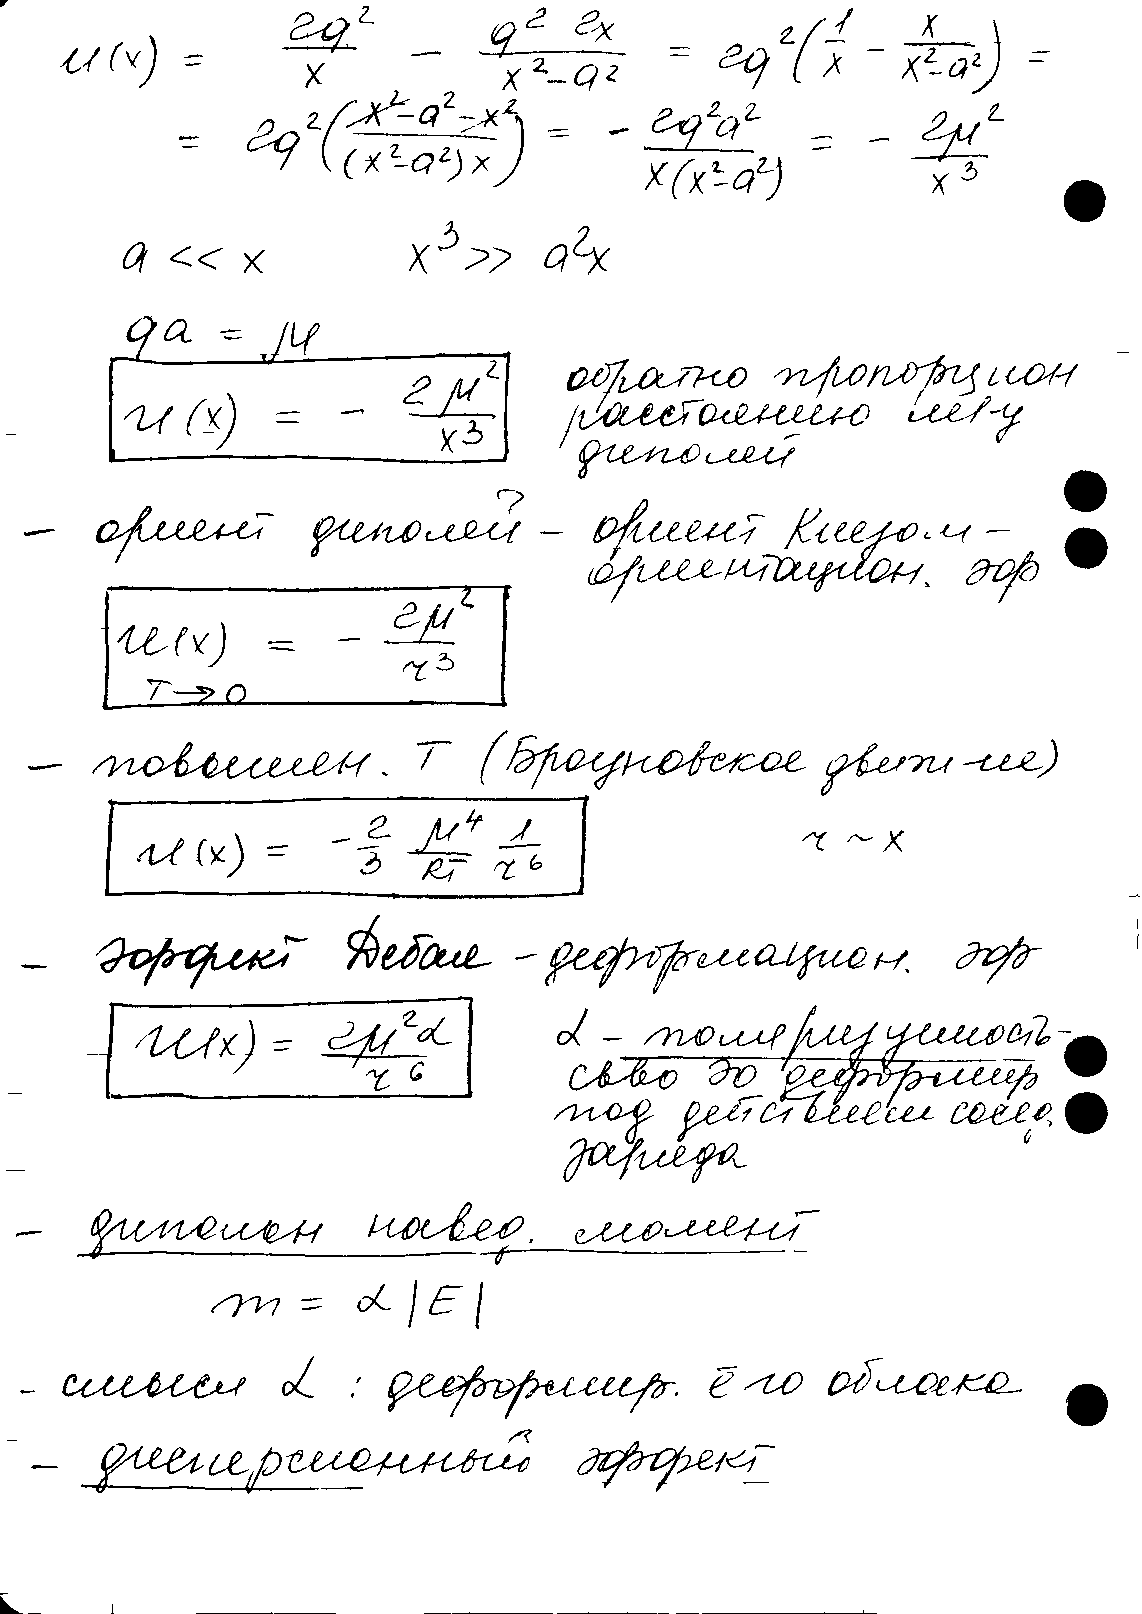 u(x) = 2q²/x - q² 2x/(x²-a²) = 2q²(1/x - x/(x²-a²)) =
= 2q²((x²-a²-x²)/((x²-a²)x)) = - 2q²a²/(x(x²-a²)) = - 2μ²/x³
a << x x³ >> a²x
qa = μ
u(x) = - 2μ²/x³
обратно пропорцион
расстоянию м-у
диполей
- ориент диполей - ориент Киезом -
ориентацион. эф
u(x) = - 2μ²/r³
T→0
- повышен. T (Броуновское движ-ие)
u(x) = -2/3 μ⁴/RT 1/r⁶ r ~ x
- эффект Дебая - деформацион. эф
u(x) = 2μ²α/r⁶
α - поляризуимость-
св-во эо деформир
под действием сосед.
заряда
- диполон навед. момент
m = α|E|
- смысл α : деформир. ēго облака
- дисперсионный эффект